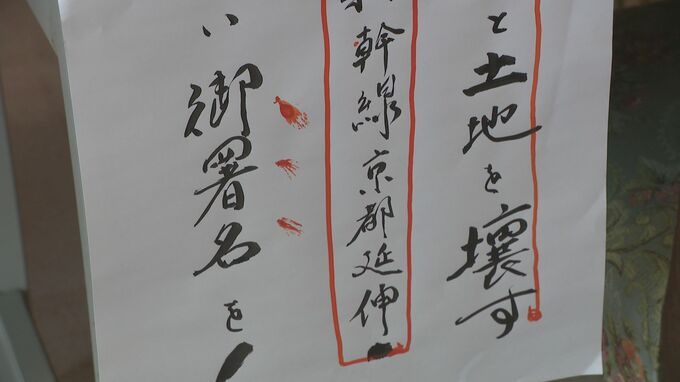 と土地を壊す
幹線京都延伸
い御署名を